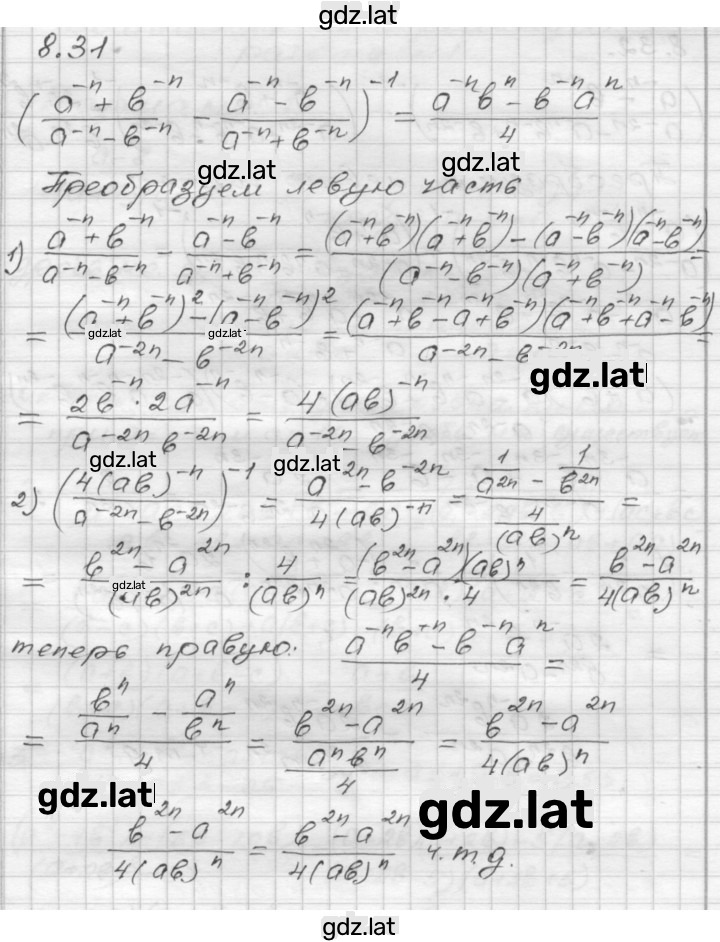 gdz.lat
8.31
((a^-n + b^-n)/(a^-n - b^-n) - (a^-n - b^-n)/(a^-n + b^-n))^-1 = (a^-n b^n - b^-n a^n)/4
gdz.lat gdz.lat
Преобразуем левую часть
1) (a^-n + b^-n)/(a^-n - b^-n) - (a^-n - b^-n)/(a^-n + b^-n) = ((a^-n + b^-n)(a^-n + b^-n) - (a^-n - b^-n)(a^-n - b^-n))/((a^-n - b^-n)(a^-n + b^-n)) =
= ((a^-n + b^-n)^2 - (a^-n - b^-n)^2)/(a^-2n - b^-2n) = ((a^-n + b^-n - a^-n + b^-n)(a^-n + b^-n + a^-n - b^-n))/(a^-2n - b^-2n) =
gdz.lat gdz.lat
gdz.lat
= (2b^-n · 2a^-n)/(a^-2n - b^-2n) = (4(ab)^-n)/(a^-2n - b^-2n)
gdz.lat gdz.lat
2) ((4(ab)^-n)/(a^-2n - b^-2n))^-1 = (a^-2n - b^-2n)/(4(ab)^-n) = (1/a^2n - 1/b^2n)/(4/(ab)^n) =
= (b^2n - a^2n)/(ab)^2n : 4/(ab)^n = ((b^2n - a^2n)(ab)^n)/((ab)^2n · 4) = (b^2n - a^2n)/(4(ab)^n)
gdz.lat
теперь правую: (a^-n b^+n - b^-n a^n)/4 =
= (b^n/a^n - a^n/b^n)/4 = (b^2n - a^2n)/(a^n b^n/4) = (b^2n - a^2n)/(4(ab)^n)
gdz.lat gdz.lat
(b^2n - a^2n)/(4(ab)^n) = (b^2n - a^2n)/(4(ab)^n) ч.т.д.
gdz.lat